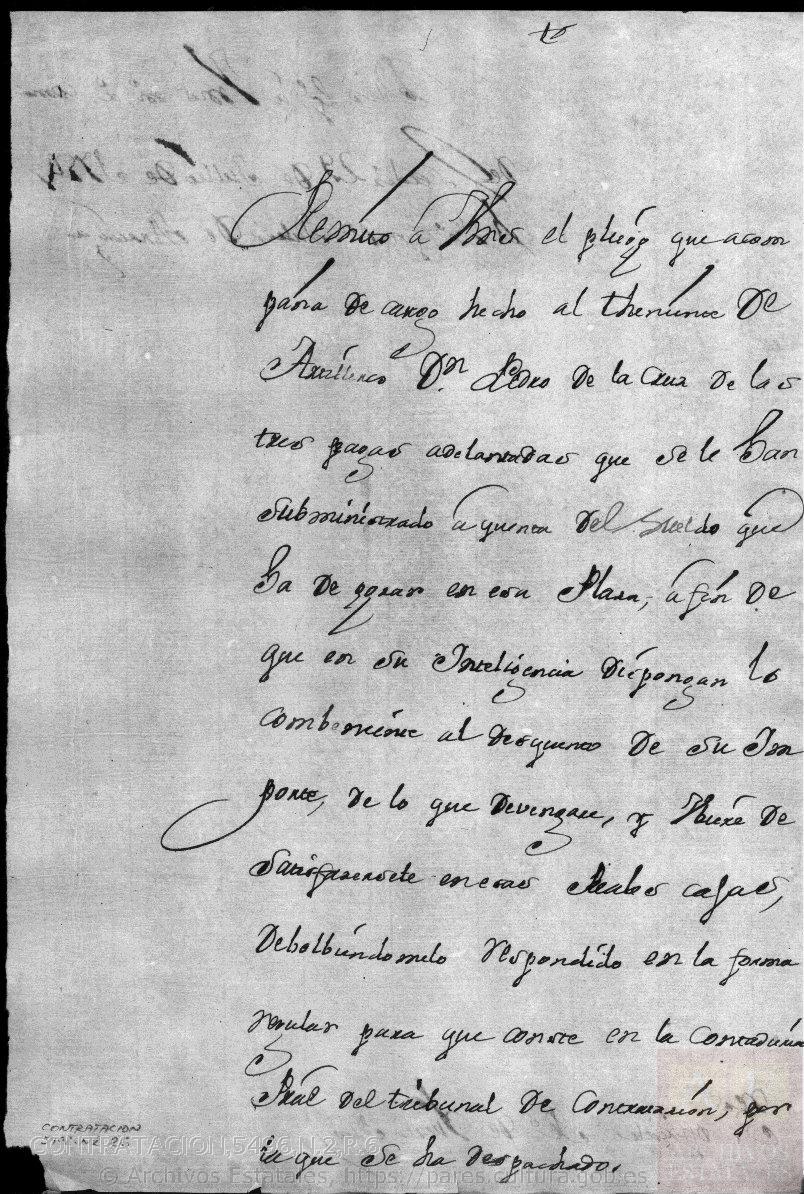 Remito à Vmes el pliego que acom
paña de cargo hecho al theniente De
Artilleria Dn Pedro De la Cruz De las
tres pagas adelantadas que se le han
subministrado à quenta del sueldo que
ha De gozar en esa Plaza, à fin De
que en su Inteligencia Dispongan lo
combeniente al Desquento De su Im
porte, de lo que devengare, y huvie De
satisfacersele en esas Reales cajas,
Debolbiendomelo respondido en la forma
regular para que conste en la Contaduria
Pral del tribunal De Contratacion, por
la que se ha Despachado.
CONTRATACION
CONTRATACION,5426,N.2,R.6
© Archivos Estatales, https://pares.cultura.gob.es